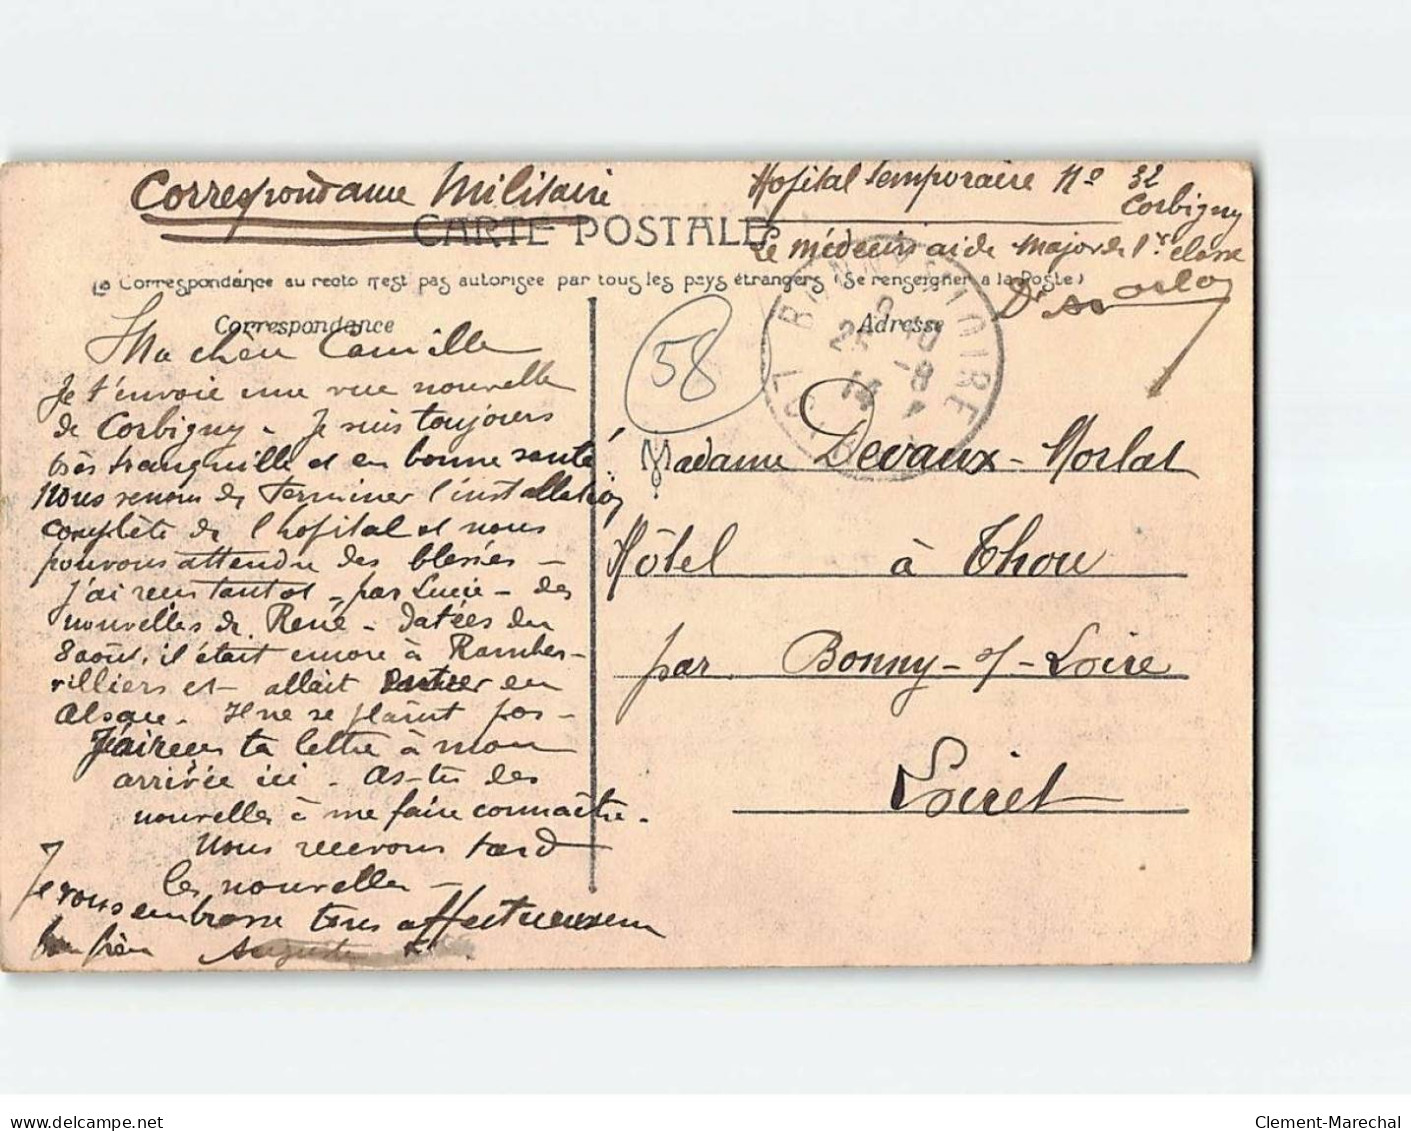 Correspondance Militaire
Hopital temporaire No 32
Corbigny
Le Médecin aide Major de 1re classe
Dr
CARTE POSTALE
La Correspondance au recto n'est pas autorisée par tous les pays étrangers (Se renseigner à la Poste)
Correspondance
Adresse
58
LOIRE
Ma chère Camille
Je t'envoie une vue nouvelle
de Corbigny - Je suis toujours
très tranquille et en bonne santé.
Nous venons de terminer l'installation
complète de l'hopital et nous
pouvons attendre des blessés -
J'ai reçu tantot - par Lucie - des
nouvelles de René - datées du
8 août, il était encore à Ramber-
villiers et allait partir en
Alsace. Il ne se plaint pas -
J'ai reçu ta lettre à mon
arrivée ici - As-tu des
nouvelles à me faire connaître -
Nous recevons tard
les nouvelles -
Je vous embrasse tous affectueusem
ton frère Auguste
Madame Devaux-Morlat
Hôtel à Thou
par Bonny-s/-Loire
Loiret
delcampe.net
Clement-Marechal